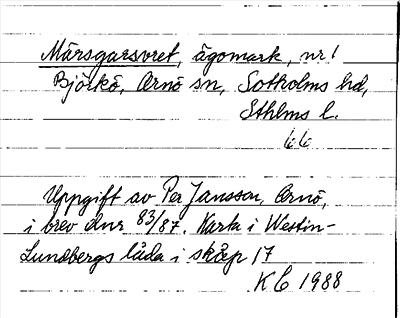 Märsgarsvret, ägomark, nr 1
Björkö, Ornö sn, Sotholms hd,
Sthlms l.
66
Uppgift av Per Jansson, Ornö,
i brev dnr 83/87. Karta i Westin-
Lundbergs låda i skåp 17
K G 1988